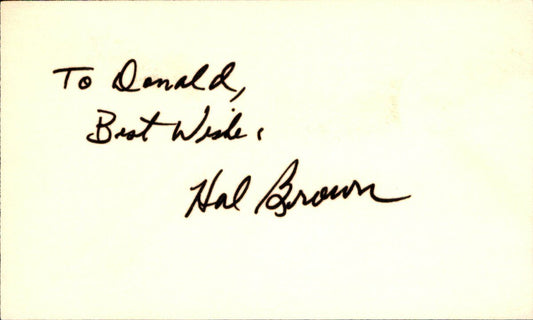 To Donald,
Best Wishes
Hal Brown